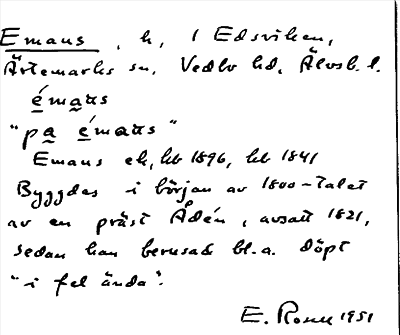 Emaus, h, i Edsviken,
Ärtemarks sn, Vedbo hd, Älvsb. l.
émaus
"pa émaus"
Emaus ek, hb 1896, hb 1841
Byggdes i början av 1800-talet
av en präst Ådén, avsatt 1821,
sedan han berusad bl.a. döpt
"i fel ända".
E. Rosell 1951